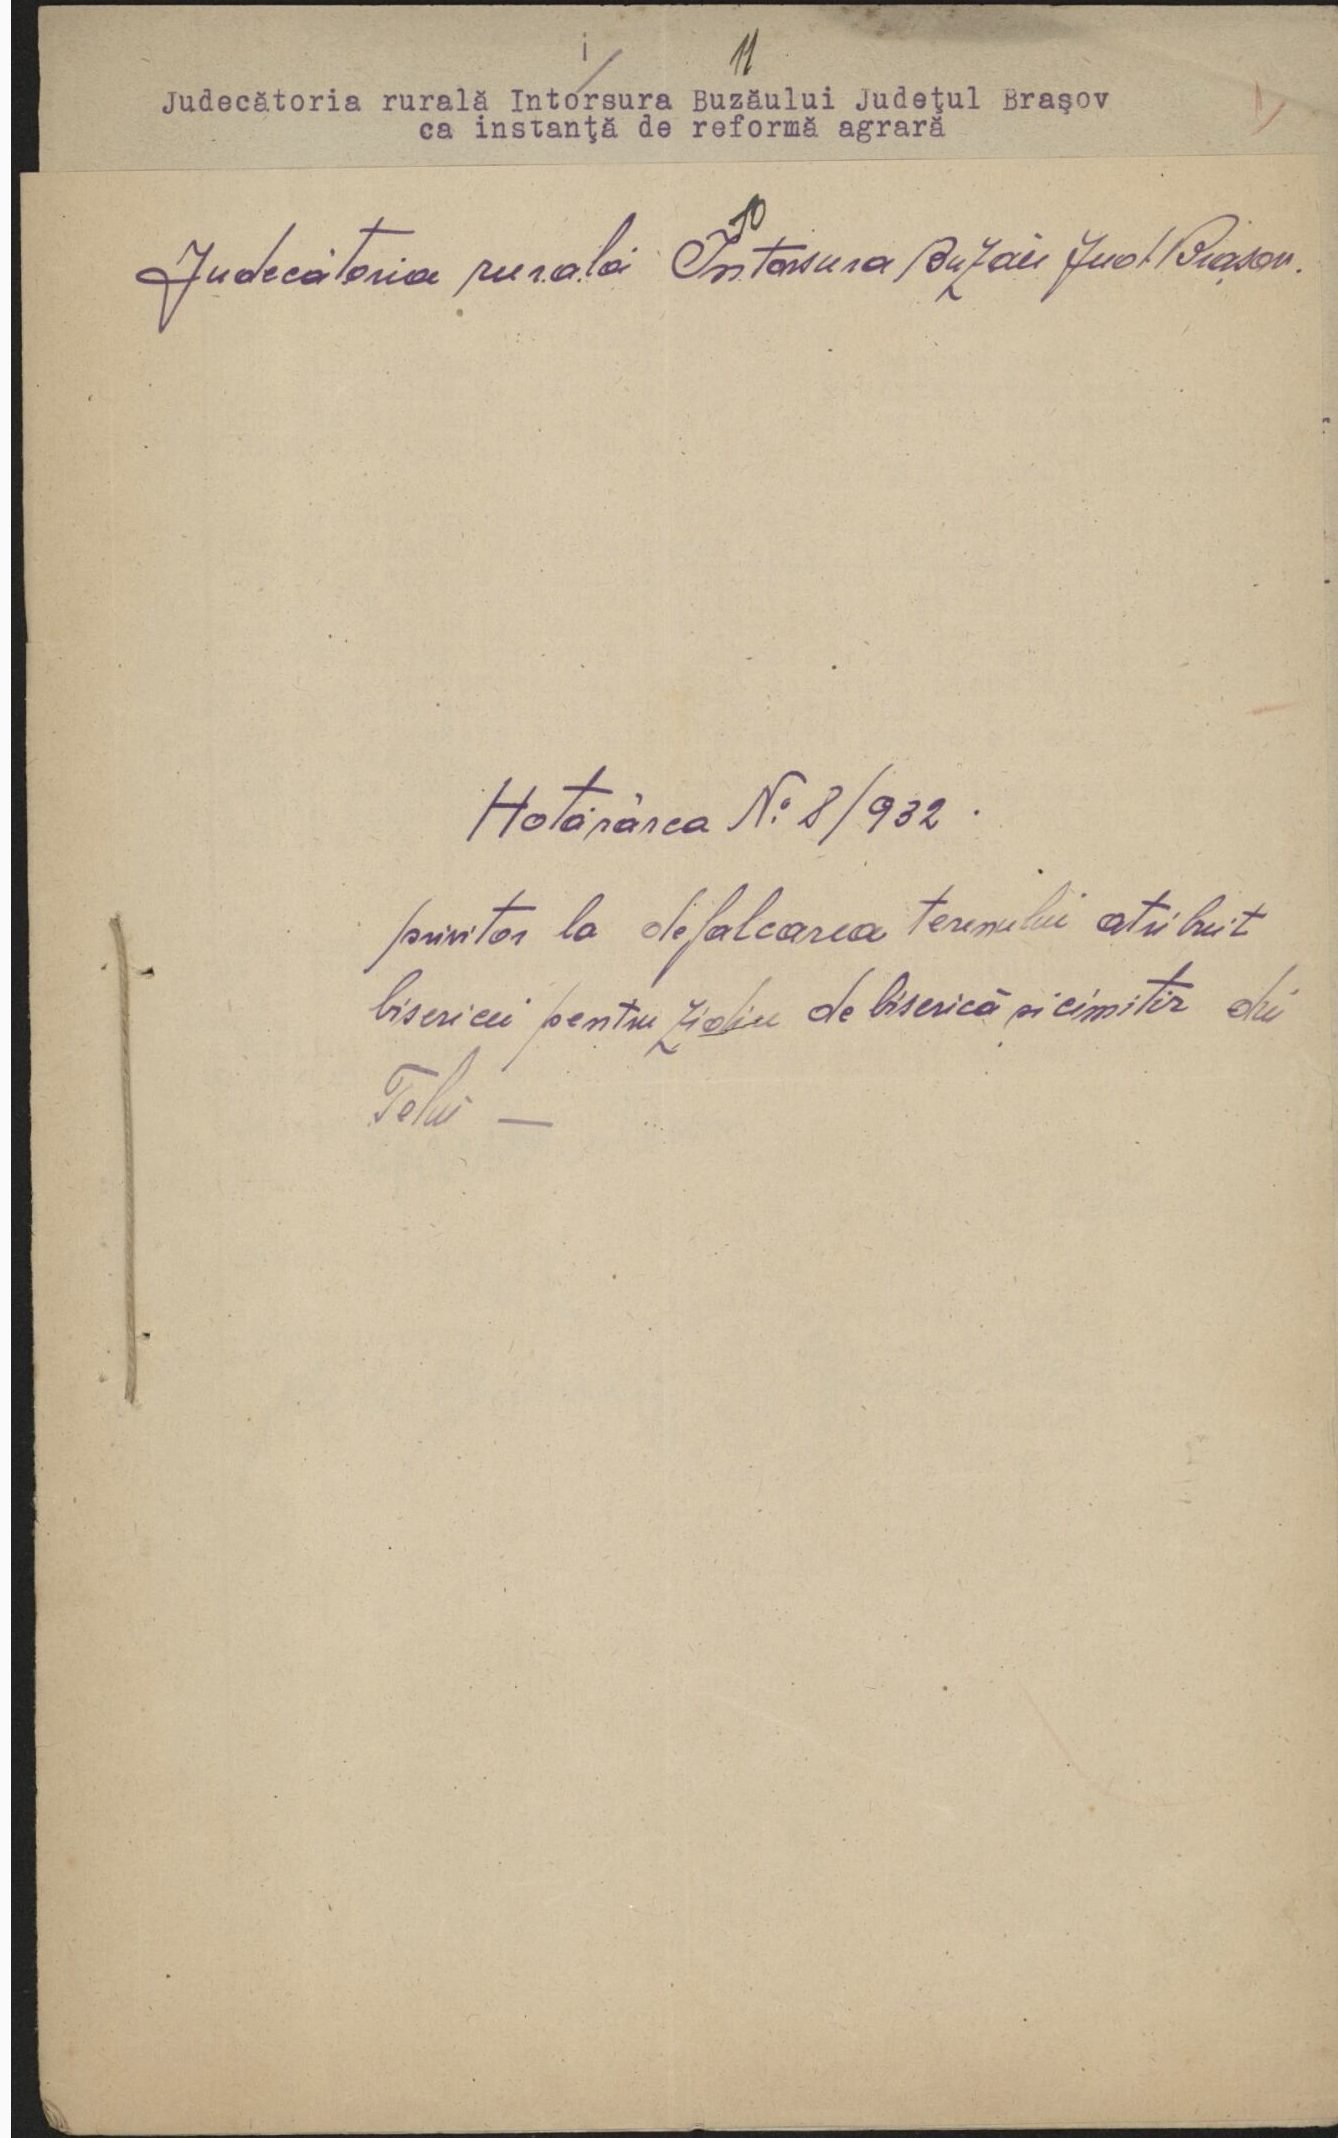 11
Judecătoria rurală Intorsura Buzăului Judeţul Braşov
ca instanţă de reformă agrară
10
Judecătoria rurală Întorsura Buzău Jud. Braşov.
Hotărârea No. 8/932.
privitor la defalcarea terenului atribuit
bisericei pentru de biserică şi cimitir din
Teliu —